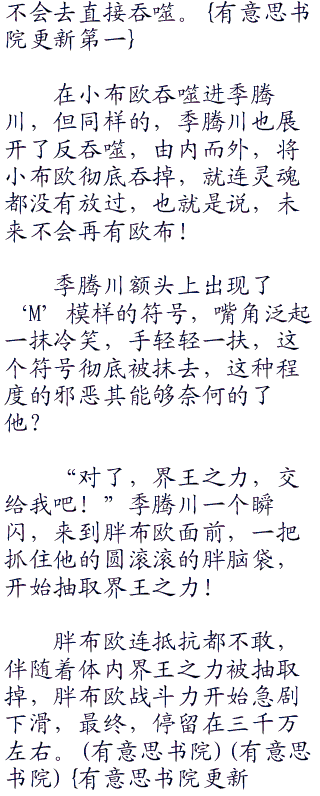 不会去直接吞噬。{有意思书
院更新第一}
在小布欧吞噬进季腾
川，但同样的，季腾川也展
开了反吞噬，由内而外，将
小布欧彻底吞掉，就连灵魂
都没有放过，也就是说，未
来不会再有欧布！
季腾川额头上出现了
‘M’模样的符号，嘴角泛起
一抹冷笑，手轻轻一扶，这
个符号彻底被抹去，这种程
度的邪恶其能够奈何的了
他？
“对了，界王之力，交
给我吧！”季腾川一个瞬
闪，来到胖布欧面前，一把
抓住他的圆滚滚的胖脑袋，
开始抽取界王之力！
胖布欧连抵抗都不敢，
伴随着体内界王之力被抽取
掉，胖布欧战斗力开始急剧
下滑，最终，停留在三千万
左右。(有意思书院)(有意思
书院){有意思书院更新